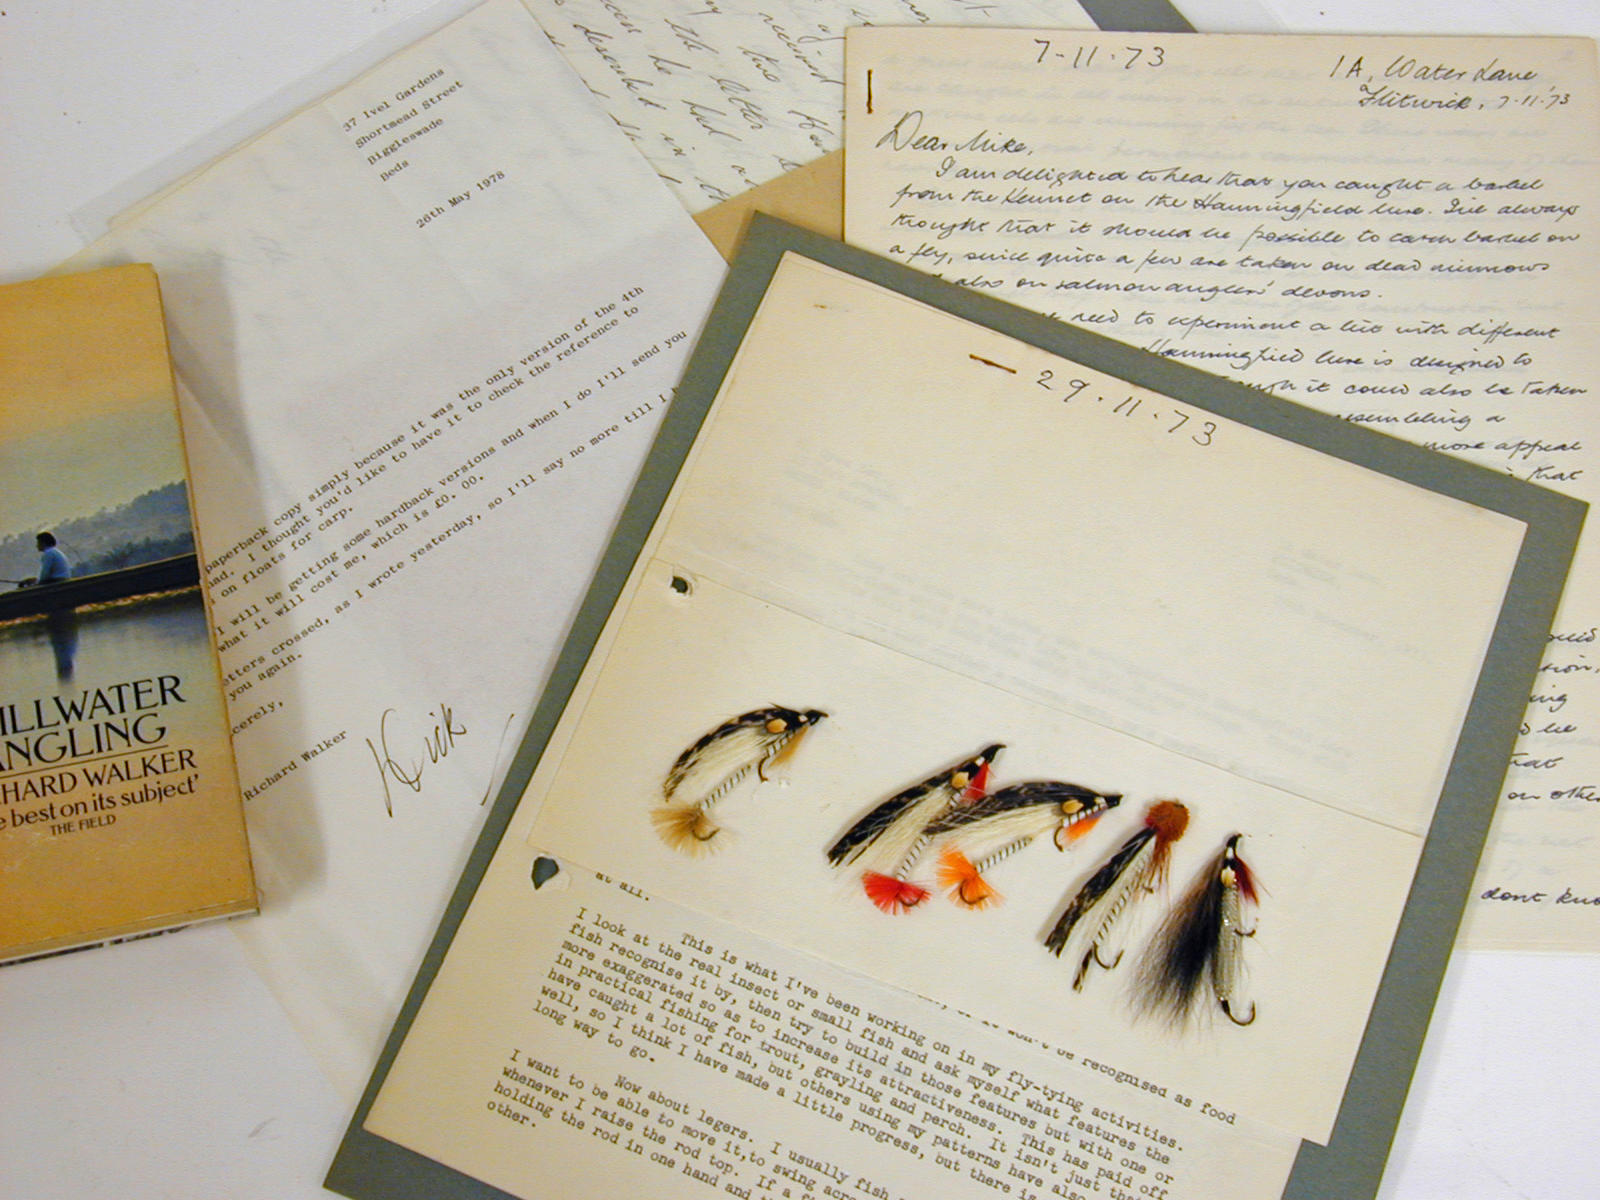 37 Ivel Gardens
Shortmead Street
Biggleswade
Beds
26th May 1978
paperback copy simply because it was the only version of the 4th
I thought you'd like to have it to check the reference to
on floats for carp.
I will be getting some hardback versions and when I do I'll send you
what it will cost me, which is £0. 00.
crossed, as I wrote yesterday, so I'll say no more till I
you again.
Richard Walker
Dick
ILLWATER
ANGLING
HARD WALKER
best on its subject'
THE FIELD
the letter
described in
7-11-73
1A, Water Lane
Flitwick, 7-11-73
Dear Mike,
I am delighted to hear that you caught a barbel
from the Kennet on the Hanningfield lure. I've always
thought that it should be possible to catch barbel on
a fly, since quite a few are taken on dead minnows
also on salmon anglers' devons.
need to experiment a bit with different
Hanningfield lure is designed to
it could also be taken
resembling a
more appeal
that
be
that
on other
dont know
29.11.73
at all.
This is what I've been working on in my fly-tying activities.
I look at the real insect or small fish and ask myself what features the
fish recognise it by, then try to build in those features but with one or
more exaggerated so as to increase its attractiveness. This has paid off
in practical fishing for trout, grayling and perch. It isn't just that
have caught a lot of fish, but others using my patterns have also
well, so I think I have made a little progress, but there is
long way to go.
Now about legers. I usually fish
I want to be able to move it,to swing
whenever I raise the rod top. If a
holding the rod in one hand and
other.
be recognised as food